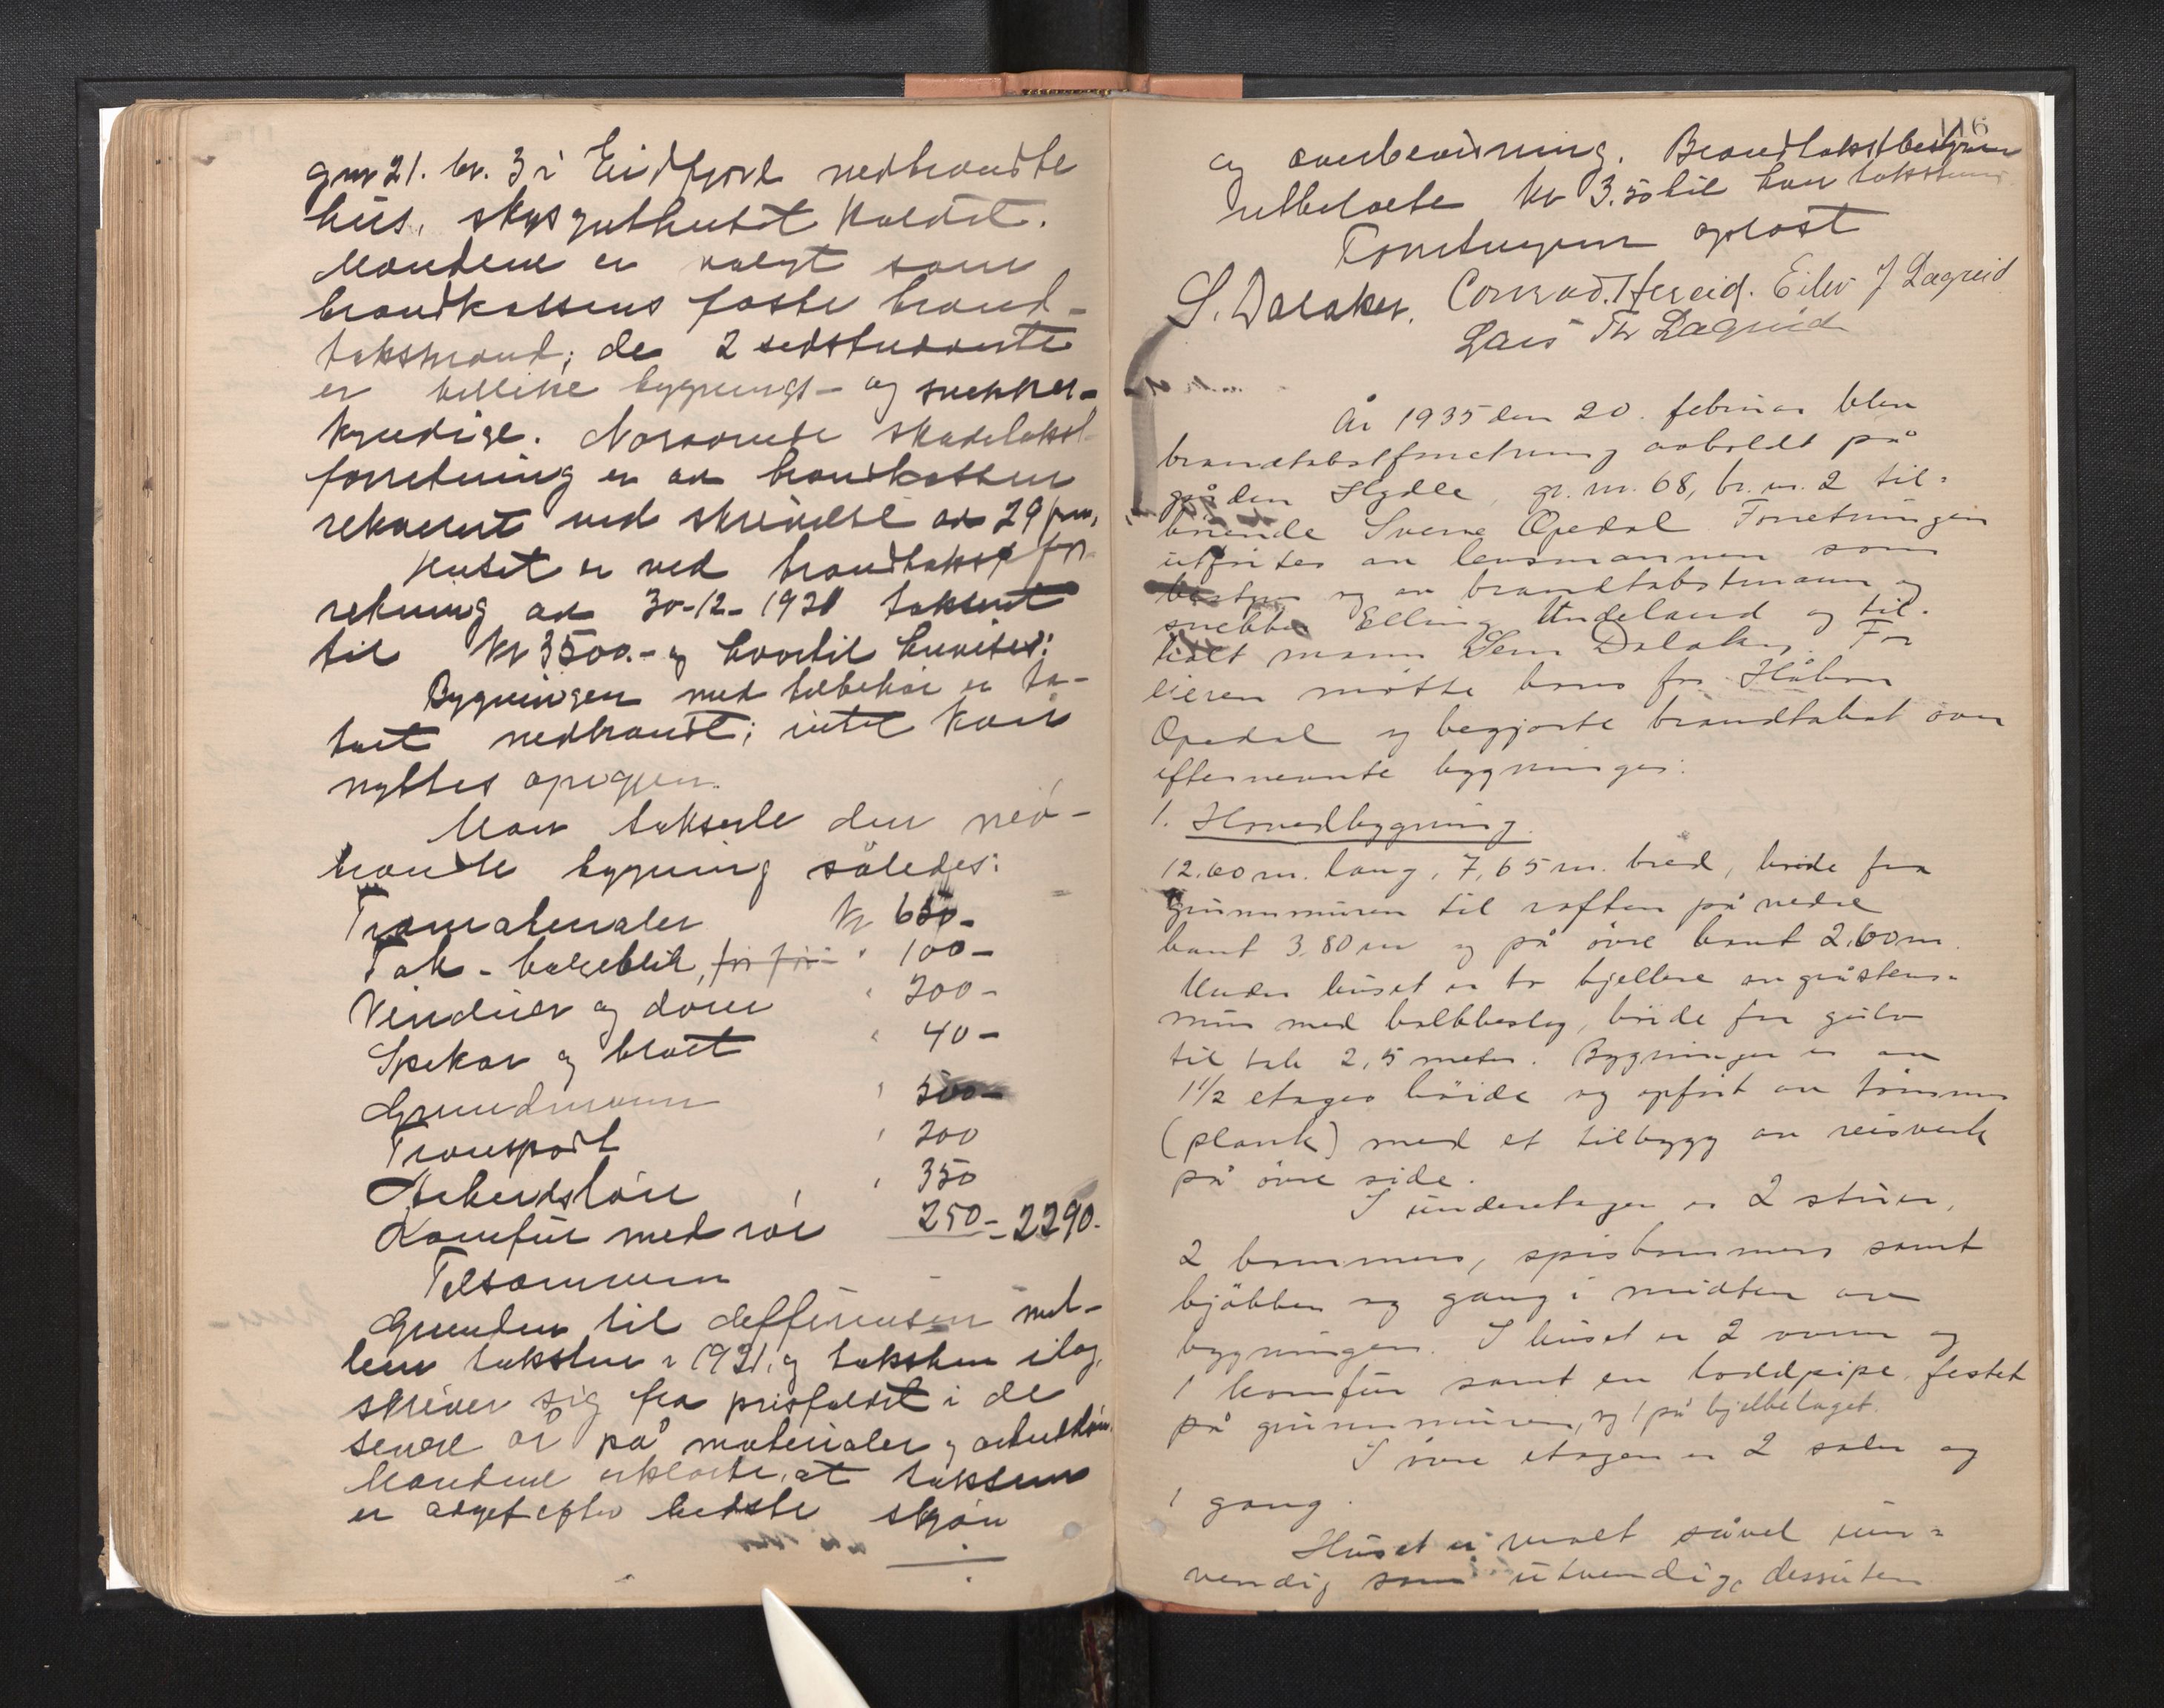 gnr 21. br. 3 i Eidfjord nedbrændte
hus, skysguthuset kaldet.
Mændene er valgt som
brandkassens faste brand-
takstmænd; de 2 sidstnævnte
er tillike bygnings- og snekker-
kyndige. Nærværende skadetakst-
forretning er av brandkassen
rekvirert ved skrivelse av 29 f.m.
Huset er ved brandtakstfor-
retning av 30-12-1921 taksert
til kr 3500.- og hvortil henvises:
Bygningen med tilbehør er to-
talt nedbrændt; intet kan
nyttes op igjen.
Man takserte den ned-
brændte bygning således:
Træmaterialer kr 650-
Tak - bølgeblik, " 100-
Vinduer og døre " 200-
Spiker og beslag " 40-
Grundmuren " 500-
Transport " 200
Arbeidsløn " 350
Komfur med rør 250- 2290.-
Tilsammen
Grunden til differensen mel-
lem taksten i 1921 og taksten idag,
skriver sig fra prisfaldet i de
senere år på materialer og arbeidsløn.
Mændene erklærte, at taksten
er avgit efter bedste skjøn
116
og overbevisning. Brandtakstbestyrer
utbetalte kr 3.50 til hver takstmand
Forretningen oplæst
S. Dalaker. Conrad Hereid. Eiliv J Lægreid
Lars Th Lægreid
År 1935 den 20. februar blev
brandtakstforretning avholdt på
gården Hydle, gr. nr. 68, br. nr. 2 til-
hörende Sverre Opedal Forretningen
utförtes av lensmannen som
bestyrer og av brandtakstmann og
snekker Elling Undeland og til-
kalt mann Sem Dalaker. For
eieren mötte hans far Håkon
Opedal og begjærte brandtakst over
efternevnte bygninger:
1. Hovedbygning.
12.60 m. lang, 7,65 m. bred, höide fra
grunnmuren til raften på nedre
kant 3,80 m og på övre kant 2,60 m.
Under huset er to kjellere av gråstens-
mur med kalkbeslag, höide fra gulv
til tak 2,5 meter. Bygningen er av
1 1/2 etages höide og opfört av tömmer
(plank) med et tilbygg av reisverk
på övre side.
I underetagen er 2 stuer,
2 kammers, spiskammers samt
kjökken og gang i midten av
bygningen. I huset er 2 ovner og
1 komfur samt en loddpipe festet
på grunnmuren, og 1 på bjelkelaget.
I övre etagen er 2 saler og
1 gang.
Huset er malt såvel inn-
vendig som utvendig, dessuten